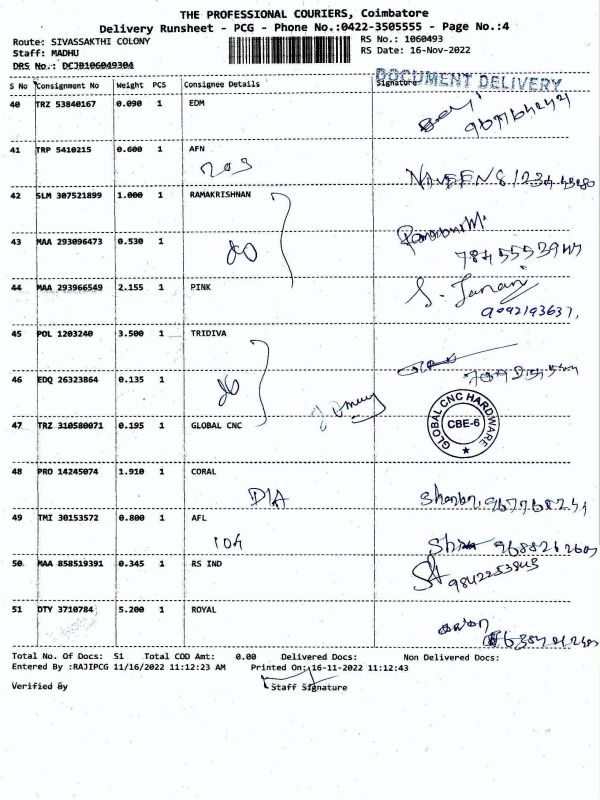 THE PROFESSIONAL COURIERS, Coimbatore
Delivery Runsheet - PCG - Phone No.:0422-3505555 - Page No.:4
Route: SIVASSAKTHI COLONY RS No.: 1060493
Staff: MADHU RS Date: 16-Nov-2022
DRS No.: DCJB106049304
DOCUMENT DELIVERY
S No Consignment No Weight PCS Consignee Details Signature
40 TRZ 53840167 0.090 1 EDM
41 TRP 5410215 0.600 1 AFN
203
NAVEEN
42 SLM 307521899 1.000 1 RAMAKRISHNAN
43 MAA 293096473 0.530 1
44 MAA 293966549 2.155 1 PINK
S. Janani
9092193637,
45 POL 1203240 3.500 1 TRIDIVA
46 EDQ 26323864 0.135 1
47 TRZ 310580071 0.195 1 GLOBAL CNC
GLOBAL CNC HARDWARE
CBE-6
48 PRO 14245074 1.910 1 CORAL
D/A
49 TMI 30153572 0.800 1 AFL
104
50 MAA 858519391 0.345 1 RS IND
51 DTY 3710784 5.200 1 ROYAL
Total No. Of Docs: 51 Total COD Amt: 0.00 Delivered Docs: Non Delivered Docs:
Entered By :RAJIPCG 11/16/2022 11:12:23 AM Printed On:16-11-2022 11:12:43
Verified By Staff Signature